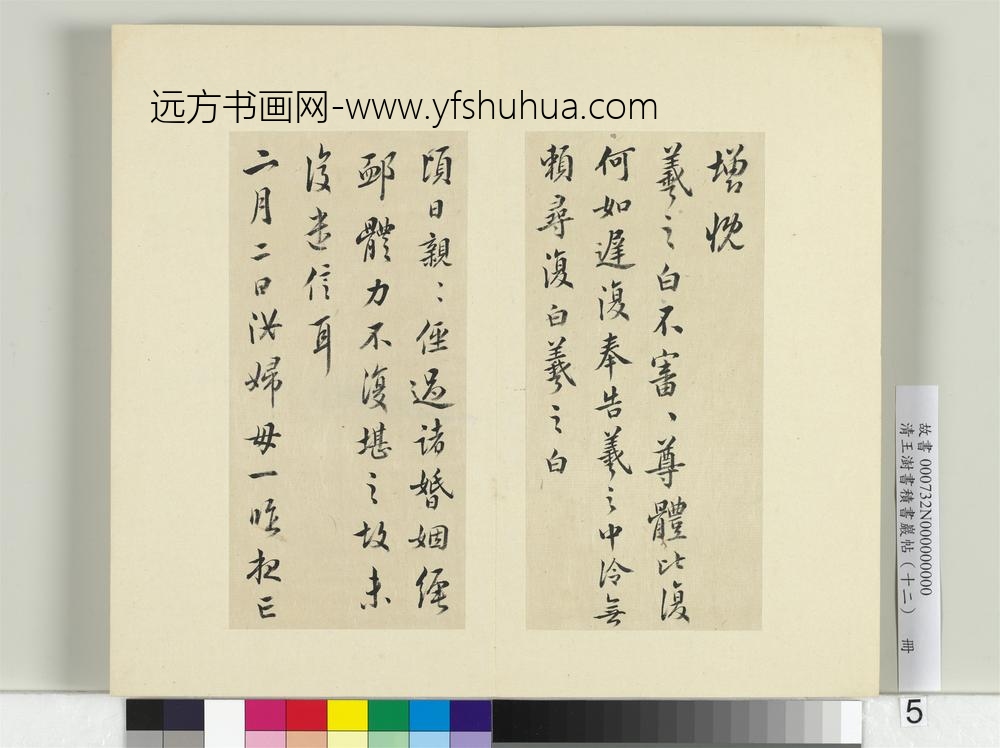 远方书画网-www.yfshuhua.com
增慨
羲之白不審、尊體比復
何如遲復奉告羲之中冷無
賴尋復白羲之白
頃日親〻經過諸婚姻經
鄙體力不復堪之故未
復遣信耳
二月二日 婦母一昨
故書 000732N000000000
清王澍書積書巖帖(十二) 冊
5